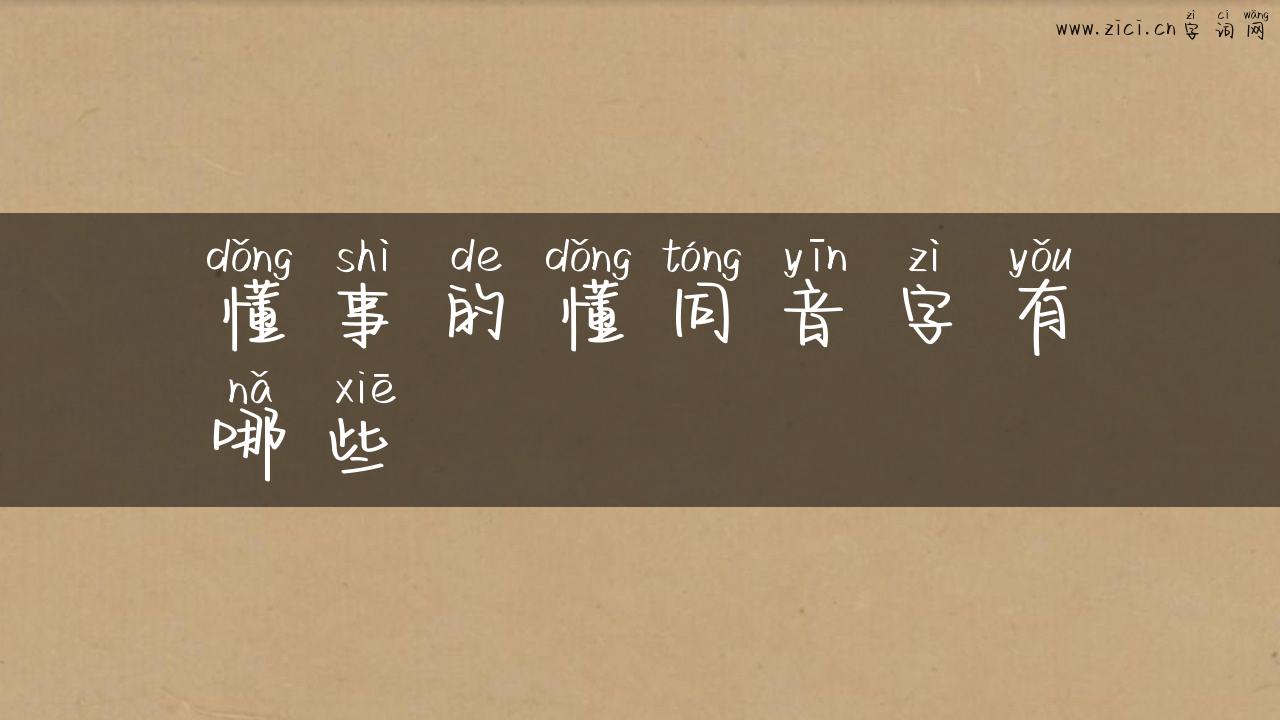 zì cí wǎng
www.zici.cn 字词网
dǒng shì de dǒng tóng yīn zì yǒu
懂事的懂同音字有
nǎ xiē
哪些